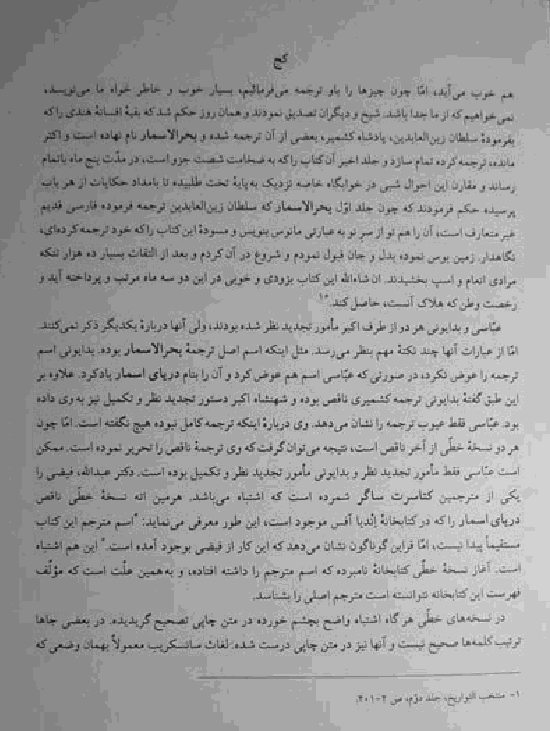 کح
هم خوب می‌آید، امّا چون چیزها را باو ترجمه می‌فرمائیم، بسیار خوب و خاطر خواه ما می‌نویسد،
نمی‌خواهیم که از ما جدا باشد. شیخ و دیگران تصدیق نمودند و همان روز حکم شد که بقیهٔ افسانهٔ هندی را که
بفرمودهٔ سلطان زین‌العابدین، پادشاه کشمیر، بعضی از آن ترجمه شده و بحرالاسمار نام نهاده است و اکثر
مانده، ترجمه کرده تمام سازد و جلد اخیر آن کتاب را که به ضخامت شصت جزو است، در مدّت پنج ماه باتمام
رساند و مقارن این احوال شبی در خوابگاه خاصه نزدیک به‌پایهٔ تخت طلبیده تا بامداد حکایات از هر باب
پرسیده حکم فرمودند که چون جلد اوّل بحرالاسمار که سلطان زین‌العابدین ترجمه فرموده فارسی قدیم
غیر متعارف است، آن را هم تو از سر نو به عبارتی مانوس بنویس و مسودهٔ این کتاب را که خود ترجمه کرده‌ای،
نگاهدار. زمین بوس نموده بدل و جان قبول نمودم و شروع در آن کردم و بعد از التفات بسیار ده هزار تنکه
مرادی انعام و اسپ بخشیدند. ان شاءالله این کتاب بزودی و خوبی در این دو سه ماه مرتب و پرداخته آید و
رخصت وطن که هلاک آنست، حاصل کند."۱
عبّاسی و بدایونی هر دو از طرف اکبر مأمور تجدید نظر شده بودند، ولی آنها دربارهٔ یکدیگر ذکر نمی‌کنند.
امّا از عبارات آنها چند نکتهٔ مهم بنظر می‌رسد. مثل اینکه اسم اصل ترجمهٔ بحرالاسمار بوده. بدایونی اسم
ترجمه را عوض نکرد، در صورتی که عبّاسی اسم هم عوض کرد و آن را بنام دریای اسمار یاد کرد. علاوه بر
این طبق گفتهٔ بدایونی ترجمه کشمیری ناقص بوده و شهنشاه اکبر دستور تجدید نظر و تکمیل نیز به وی داده
بود. عبّاسی فقط عیوب ترجمه را نشان می‌دهد. وی دربارهٔ اینکه ترجمه کامل نبوده هیچ نگفته است. امّا چون
هر دو نسخهٔ خطّی از آخر ناقص است، نتیجه می‌توان گرفت که وی ترجمهٔ ناقص را تحریر نموده است. ممکن
است عبّاسی فقط مأمور تجدید نظر و بدایونی مأمور تجدید نظر و تکمیل بوده است. دکتر عبدالله، فیضی را
یکی از مترجمین کتاسرت ساگر شمرده است که اشتباه می‌باشد. هرمین اته نسخهٔ خطّی ناقص
دریای اسمار را که در کتابخانهٔ اِندیا آفس موجود است، این طور معرفی می‌نماید: "اسم مترجم این کتاب
مستقیماً پیدا نیست، امّا قراین گوناگون نشان می‌دهد که این کار از فیضی بوجود آمده است." این هم اشتباه
است. آغاز نسخهٔ خطّی کتابخانهٔ نامبرده که اسم مترجم را داشته افتاده، و به‌همین علّت است که مؤلّف
فهرست این کتابخانه نتوانسته است مترجم اصلی را بشناسد.
در نسخه‌های خطّی هر گاه اشتباه واضح بچشم خورده در متن چاپی تصحیح گردیده. در بعضی جاها
ترتیب کلمه‌ها صحیح نیست و آنها نیز در متن چاپی درست شده. لغات سانسکریپ معمولاً بهمان وضعی که
۱- منتخب التواریخ، جلد دوّم، ص ۲-۲۰۱.